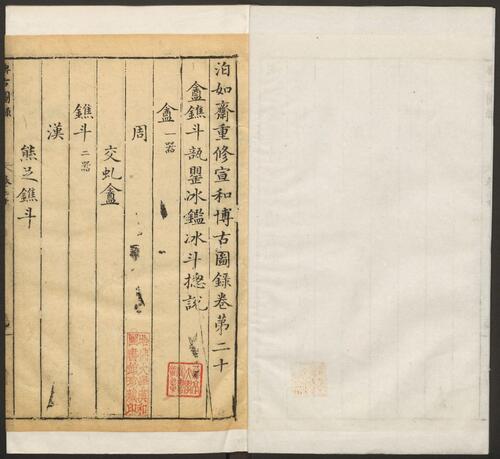 泊如齋重修宣和博古圖錄卷第二十
盦鐎斗瓿罌冰鑑冰斗摠說
盦一器
周
交虬盦
鐎斗二器
漢
熊足鐎斗